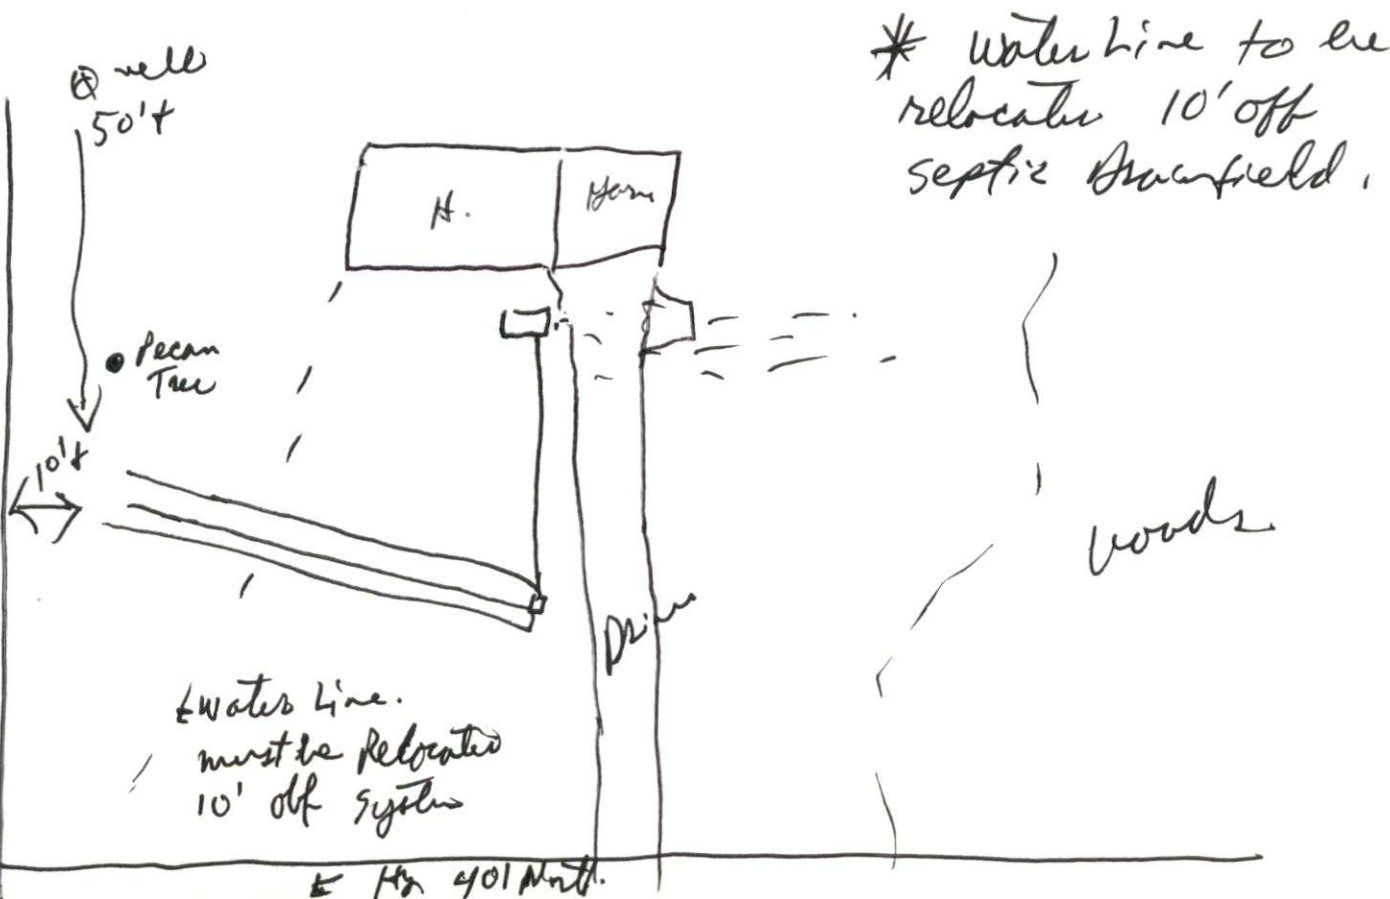 well
50'±
* Water Line to be
relocated 10' off
septic Drainfield.
H.
Pecan
Tree
10'±
woods
Drive
Water Line.
must be Relocated
10' off System
Hwy 401 North.